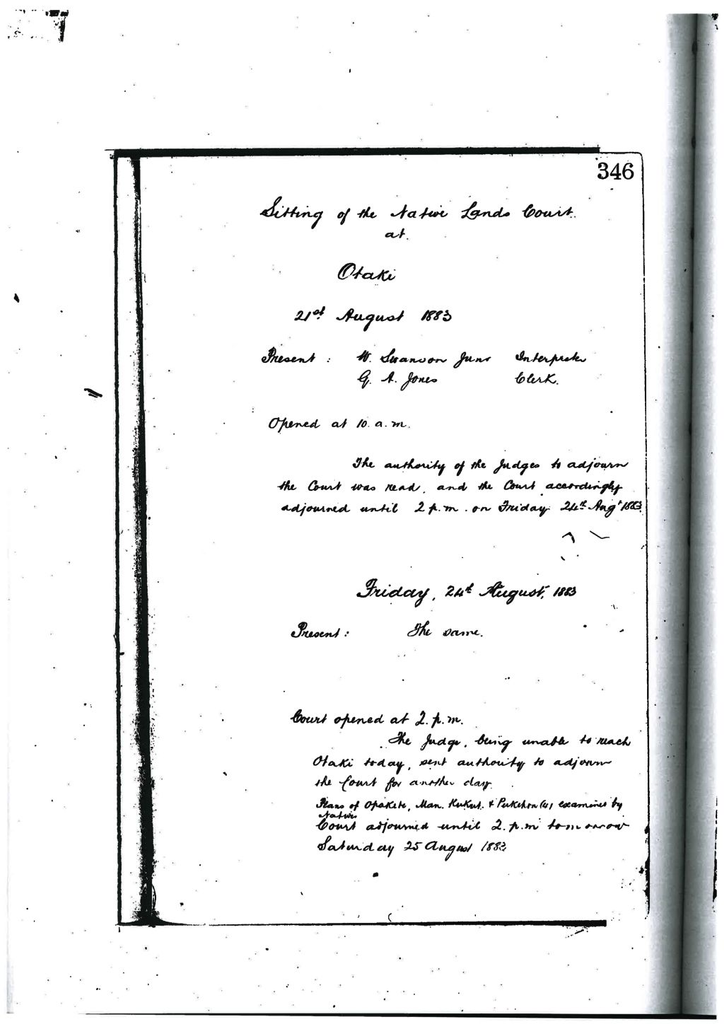 346
Sitting of the Native Lands Court
at
Otaki
21st August 1883
Present : W. Swanson Junr Interpreter
G. A. Jones Clerk.
Opened at 10. a.m.
The authority of the Judges to adjourn
the Court was read, and the Court accordingly
adjourned until 2 p.m. on Friday 24th Augt 1883
Friday, 24th August, 1883
Present : The same.
Court opened at 2. p.m.
The Judge, being unable to reach
Otaki today, sent authority to adjourn
the Court for another day
Plans of Opakete, Man. Kukut. & (4) examined by
Natives
Court adjourned until 2. p.m. tomorrow
Saturday 25 August 1883